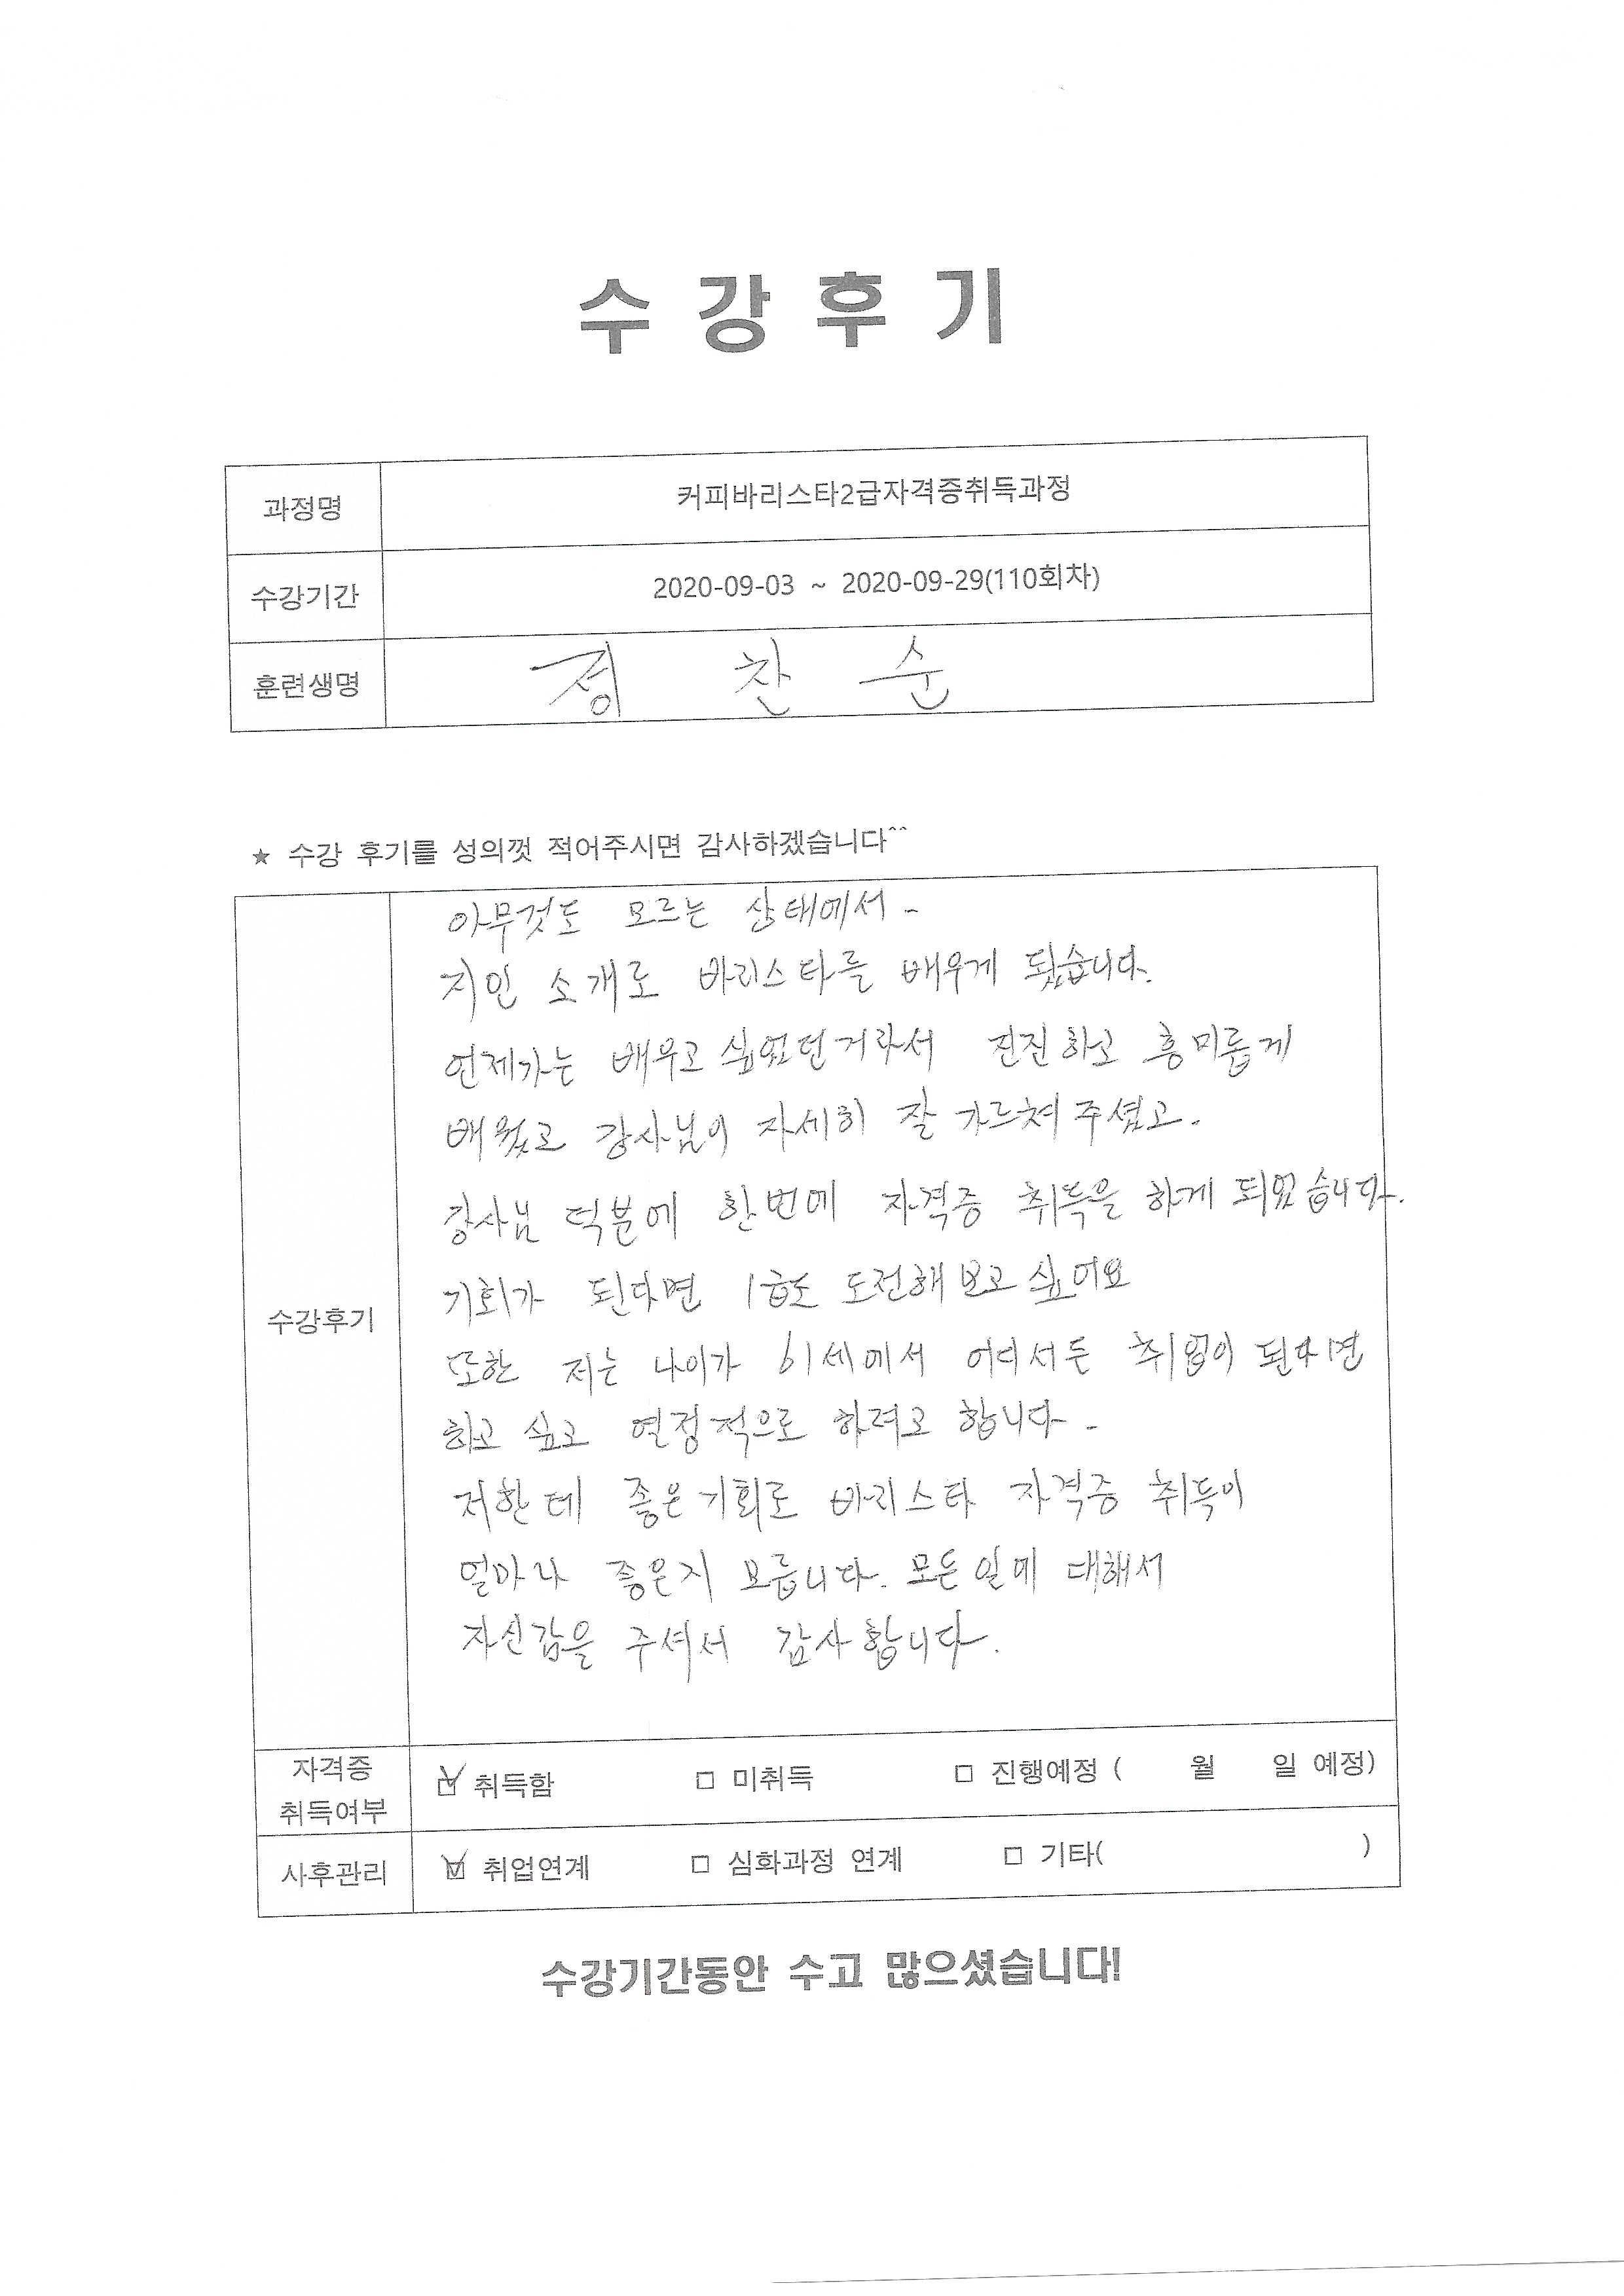 수강후기
과정명 커피바리스타2급자격증취득과정
수강기간 2020-09-03 ~ 2020-09-29(110회차)
훈련생명 정 찬 순
★ 수강 후기를 성의껏 적어주시면 감사하겠습니다^^
아무것도 모르는 상태에서.
지인 소개로 바리스타를 배우게 됬습니다.
언제가는 배우고 싶었던거라서 진진하고 흥미롭게
배웠고 강사님이 자세히 잘 가르쳐 주셨고.
강사님 덕분에 한번에 자격증 취득을 하게 되었습니다.
기회가 된다면 1급도 도전해 보고 싶어요
또한 저는 나이가 61세에서 어디서든 취업이 된다면
하고 싶고 열정적으로 하려고 합니다.
저한데 좋은기회로 바리스타 자격증 취득이
얼마나 좋은지 모릅니다. 모든일에 대해서
자신감을 주셔서 감사합니다.
수강후기
자격증
취득여부
☑ 취득함 □ 미취득 □ 진행예정 ( 월 일 예정)
사후관리 ☑ 취업연계 □ 심화과정 연계 □ 기타( )
수강기간동안 수고 많으셨습니다!